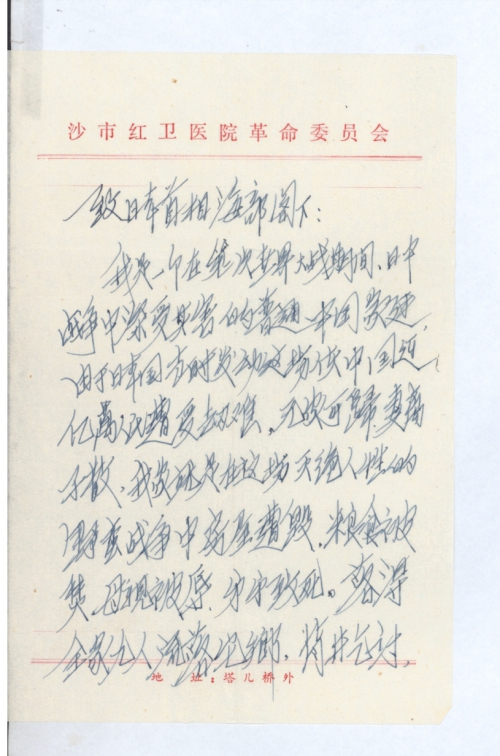 沙市红卫医院革命委员会
致日本首相海部阁下：
我是一个在第二次世界大战期间、日中
战争中深受其害的普通中国家庭，
由于日本国当时发动这场侵中，国近
亿万人民遭受劫难，无家可归，妻离
子散，我家就是在这场灭绝人性的
战争中房屋遭毁，粮食被
焚，母亲被辱，弟弟致死。落得
全家人流落他乡，背井乞讨，
地 址：塔儿桥外